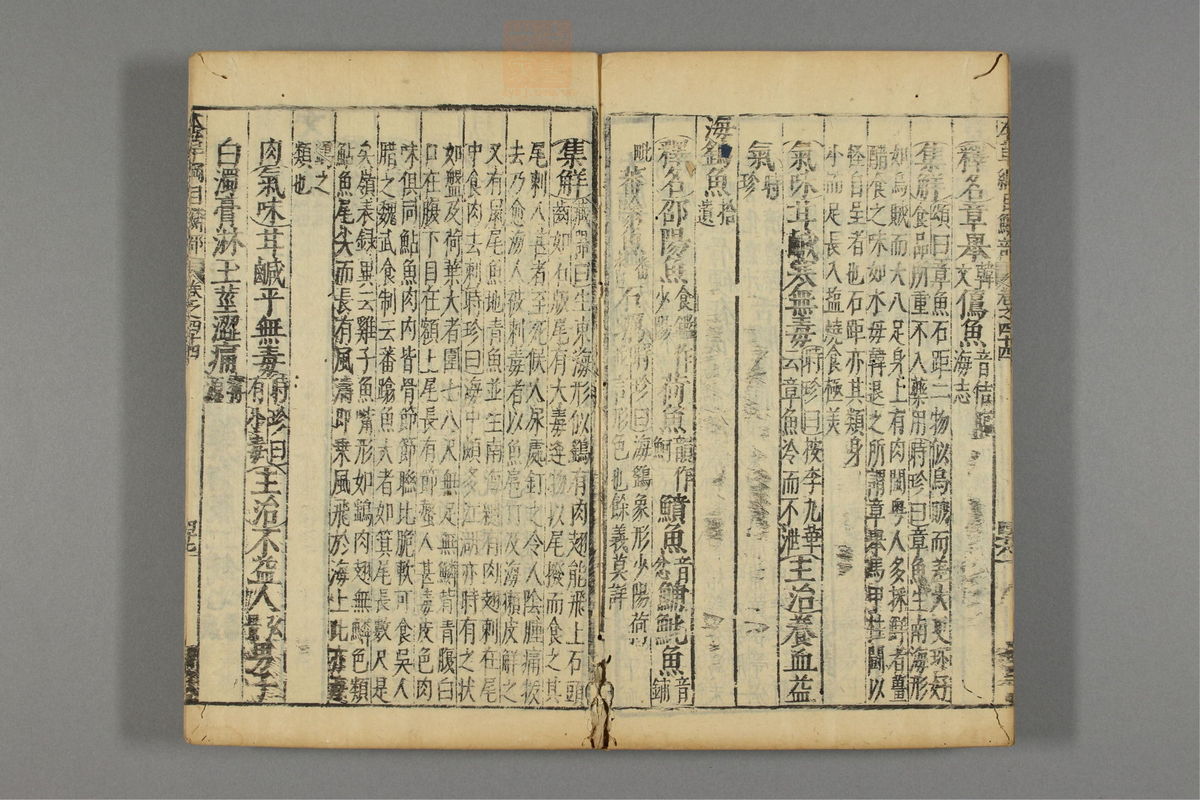 釋名章舉韓文 魚音佶臨海志
集解頌曰章魚石距二物似烏賊而差大更珍好
食品所重不入藥用時珍曰章魚生南海形
如烏賊而大八足身上有肉閩粤人多採鮮者薑
醋食之味如水母韓退之所謂章舉馬甲柱鬬以
怪自呈者也石距亦其類身
小而足長入盐燒食極美
氣味甘鹹寒無毒時珍曰按李九華云章魚冷而不泄主治養血益
氣時珍
海鷂魚拾遺
釋名邵陽魚食鑑作少陽荷魚韻作魺鱝魚音忿鯆魮魚音鋪
毗蕃 魚番石 時珍曰海鷂象形少陽荷 形色也餘義莫詳
集解藏器曰生東海形似鷂有肉翅能飛上石頭
齒如石版尾有大毒逢物以尾撥而食之其
尾刺人甚者至死候人尿處釘之令人陰腫痛拔
去乃愈海人被刺毒者以魚扈竹及海獺皮解之
又有鼠尾魚地青魚並生南海總有肉翅刺在尾
中食肉去刺時珍曰海中頗多江湖亦時有之狀
如盤及荷葉大者圍七八尺無足無鱗背青腹白
口在腹下目在額上尾長有節螫人甚毒皮色肉
味俱同鮎魚肉內皆骨節節聯比脆軟可食吳人
腊之魏武食制云蕃踰魚大者如箕尾長數尺是
矣嶺表録異云雞子魚嘴形如鷂肉翅無鱗色類
鮎魚尾尖而長有風濤即乗風飛於海上此亦海
鷂之
類也
肉氣味甘鹹平無毒時珍曰有小毒主治不益人弘景男子
白濁膏淋玉莖澀痛寗源